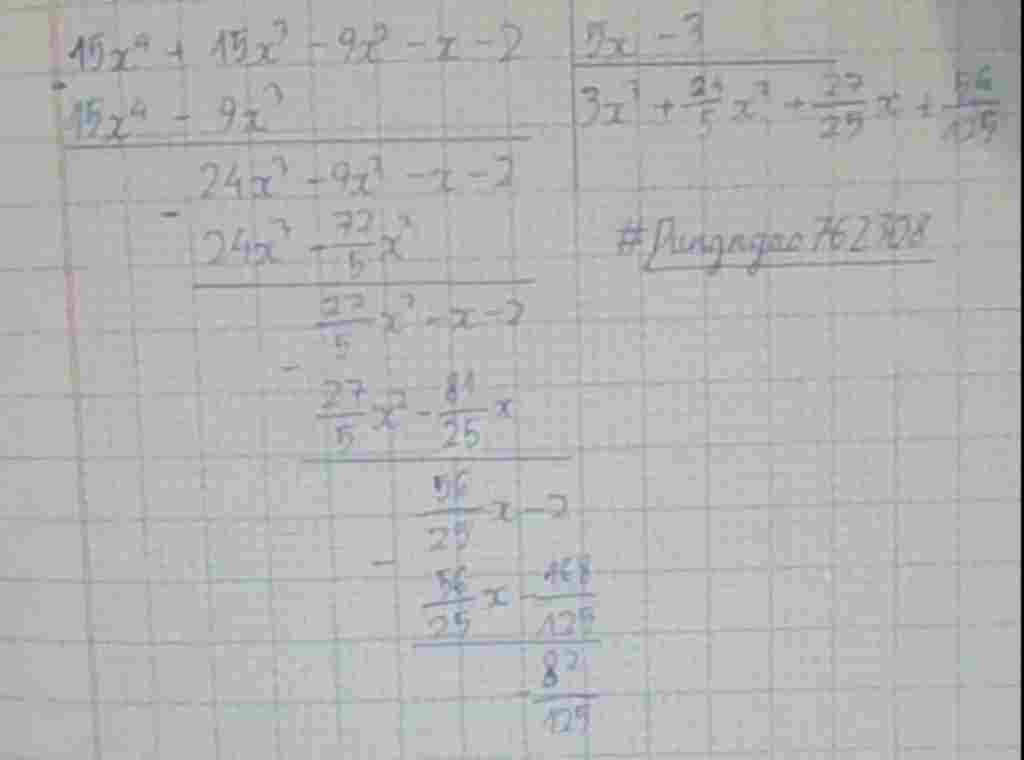 15x⁴ + 15x³ - 9x² - x - 2 | 5x - 3
- 15x⁴ - 9x³ | 3x³ + 24/5 x² + 27/25 x + 56/125
24x³ - 9x² - x - 2
- 24x³ - 72/5 x²
27/5 x² - x - 2
- 27/5 x² - 81/25 x
56/25 x - 2
- 56/25 x - 168/125
- 82/125
762308